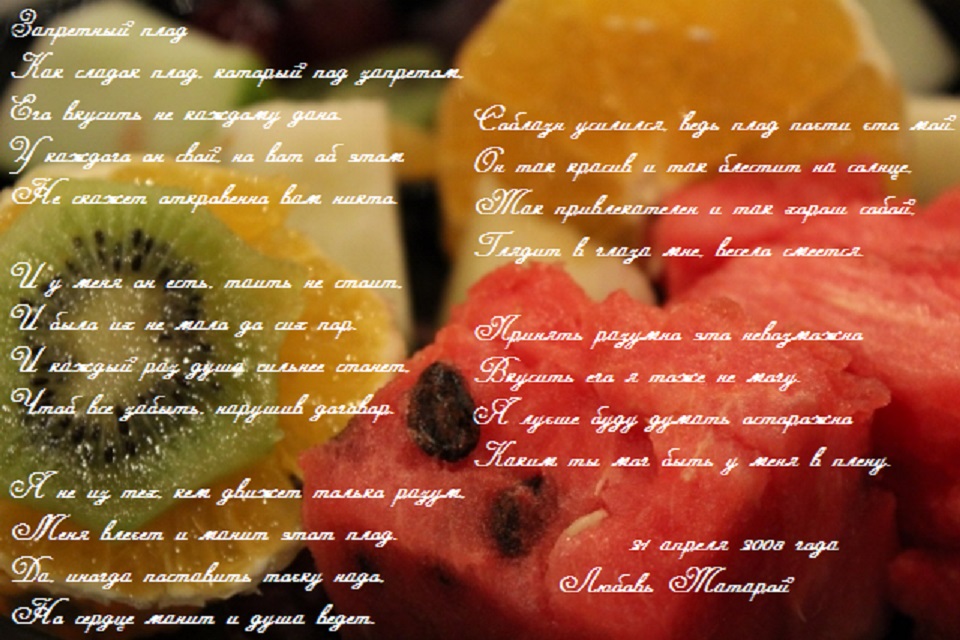 Запретный плод
Как сладок плод, который под запретом,
Его вкусить не каждому дано
У каждого он свой, но вот об этом
Не скажет откровенно вам никто.
И у меня он есть, таить не стоит,
И было их не мало до сих пор.
И каждый раз душа сильнее стонет,
Чтоб все забыть, нарушив договор.
Я не из тех, кем движет только разум,
Меня влечет и манит этот плод.
Да, иногда поставить точку надо,
Но сердце манит и душа ведет.
Соблазн усилился, ведь плод почти что мой.
Он так красив и так блестит на солнце,
Так привлекателен и так хорош собой,
Глядит в глаза мне, весело смеется.
Принять разумно это невозможно
Вкусить его я тоже не могу.
Я лучше буду думать осторожно
Каким ты мог быть у меня в плену.
21 апреля 2008 года
Любовь Татарой